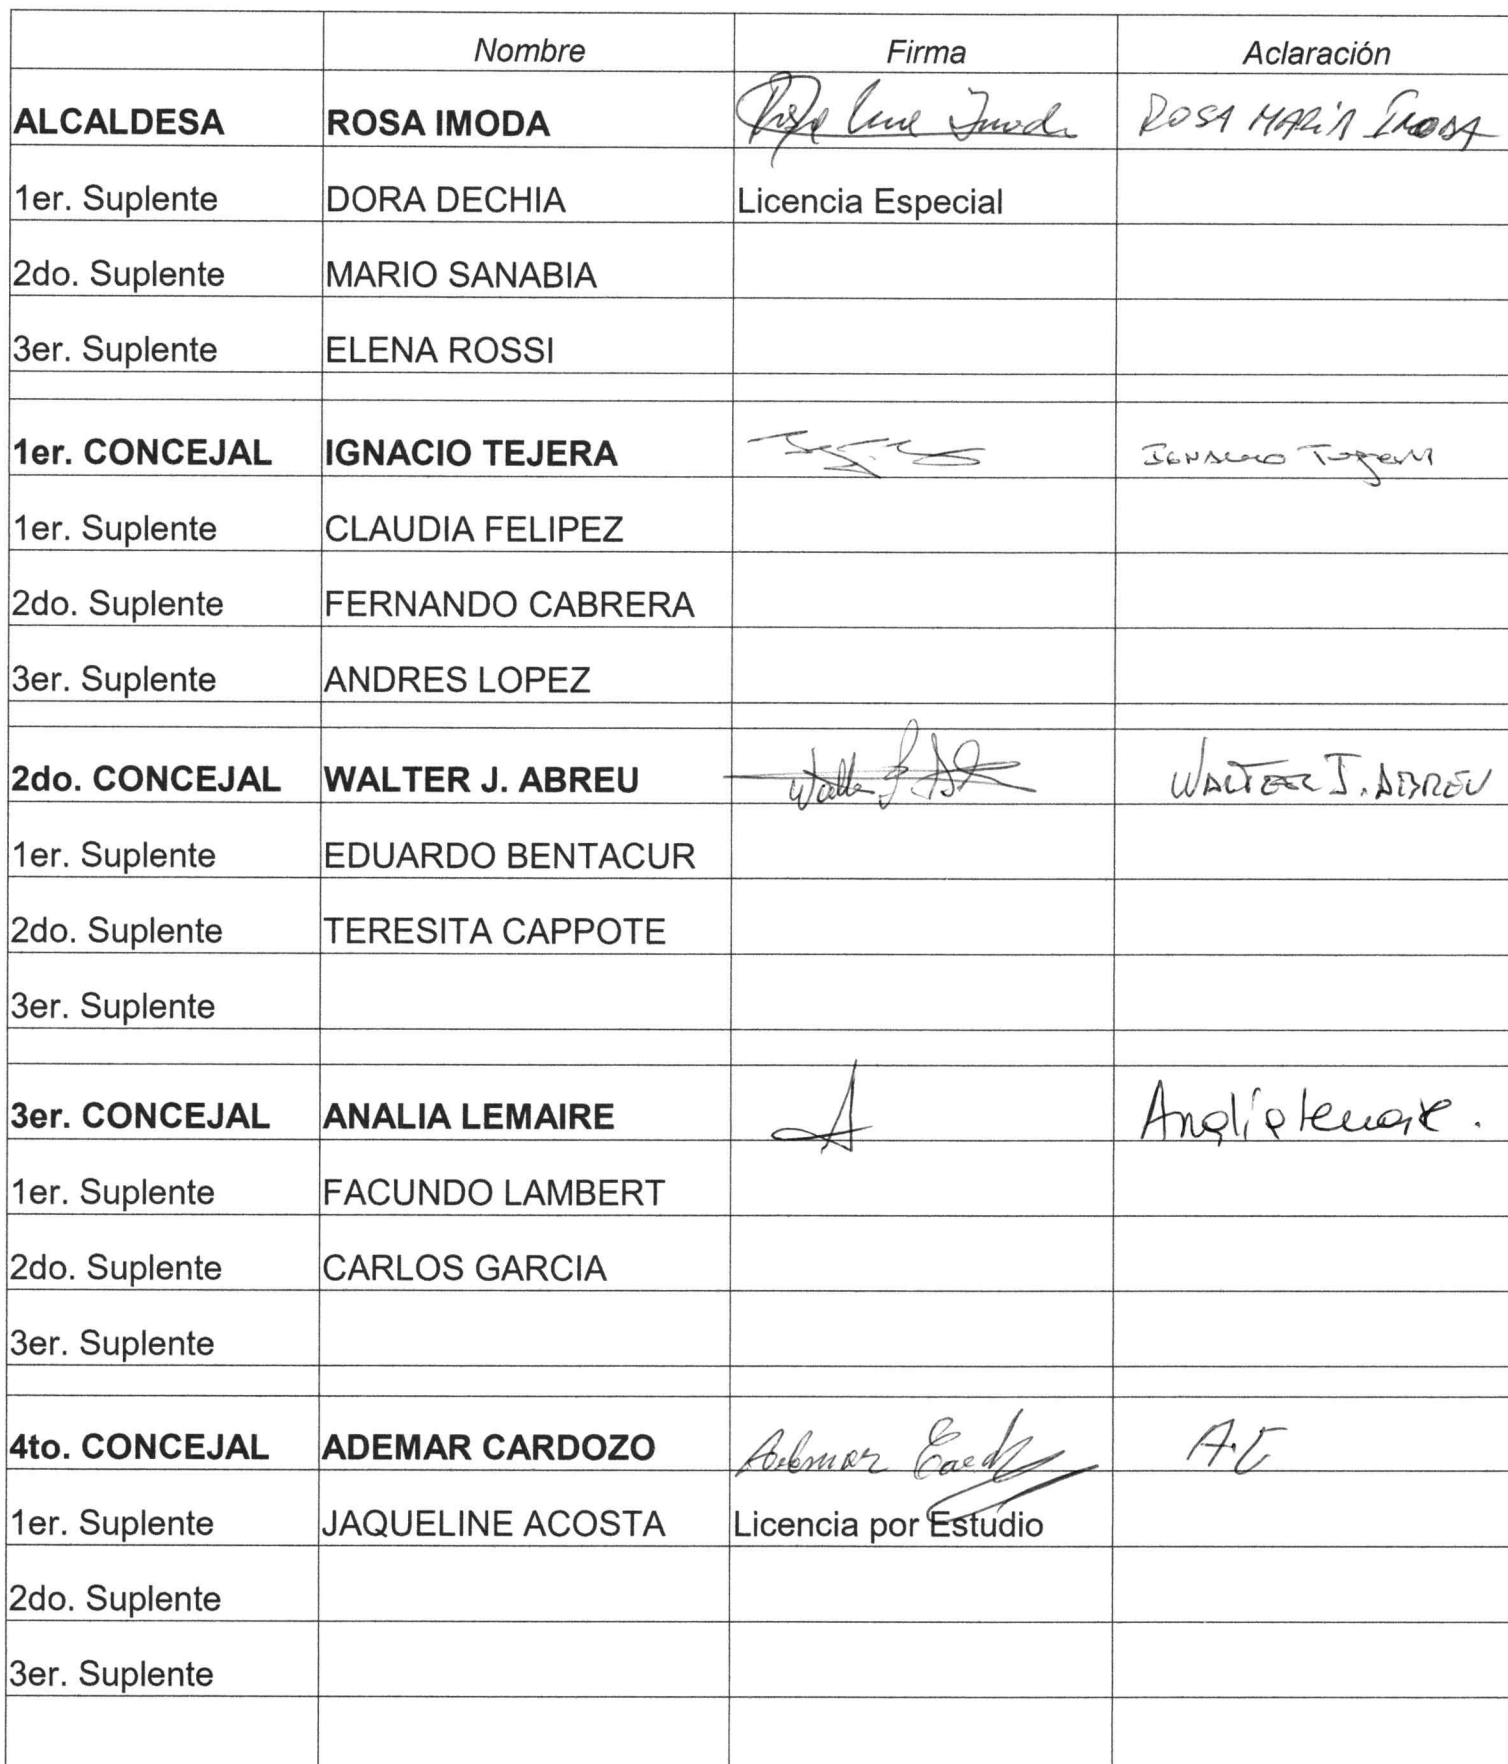 Nombre Firma Aclaración
ALCALDESA ROSA IMODA Rosa Imoda ROSA MARÍA IMODA
1er. Suplente DORA DECHIA Licencia Especial
2do. Suplente MARIO SANABIA
3er. Suplente ELENA ROSSI
1er. CONCEJAL IGNACIO TEJERA IGNACIO TEJERA
1er. Suplente CLAUDIA FELIPEZ
2do. Suplente FERNANDO CABRERA
3er. Suplente ANDRES LOPEZ
2do. CONCEJAL WALTER J. ABREU Walter J. WALTER J. ABREU
1er. Suplente EDUARDO BENTACUR
2do. Suplente TERESITA CAPPOTE
3er. Suplente
3er. CONCEJAL ANALIA LEMAIRE A Analía Lemaire.
1er. Suplente FACUNDO LAMBERT
2do. Suplente CARLOS GARCIA
3er. Suplente
4to. CONCEJAL ADEMAR CARDOZO Ademar A.C
1er. Suplente JAQUELINE ACOSTA Licencia por Estudio
2do. Suplente
3er. Suplente